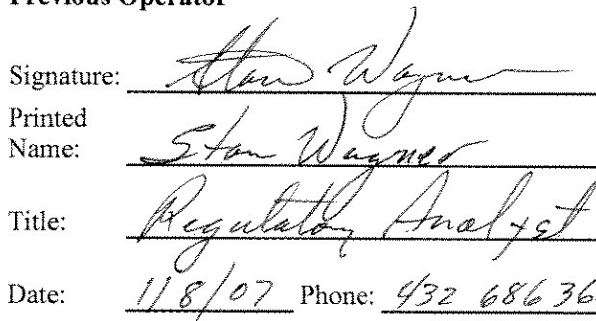 Previous Operator
Signature: Stan Wagner
Printed
Name: Stan Wagner
Title: Regulatory Analyst
Date: 1/8/07 Phone: 432 686 36